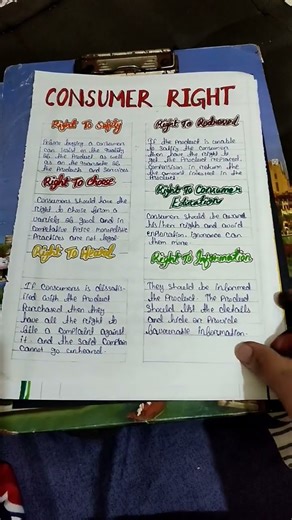 CONSUMER RIGHT
Right To Safety
Before buying a consumers
can insist on the quality
of the Product as well
as on the guarantee of
the Products and Services
Right To Chose
Consumers should have the
right to chose from a
variety of good and in
Competative Price monopolistic
Practices are not legal
Right To Heared
If Consumers is dissatis-
fied with the Product
Purchased then they
have all the right to
file a complaint against
it and the said Complain
Cannot go unheared.
Right To Redressed
If the Product is unable
to satisfy the consumer
then have the right to
get the Product replaced,
Compension in return the
the amount invested in the
Product
Right To Consumer
Education
Consumer should be aware
his/her rights and avoid
exploration Ignorance can
them more
Right To Information
They should be informed
the Product. The Product
Should list the details
and hide or Provide
favourable information